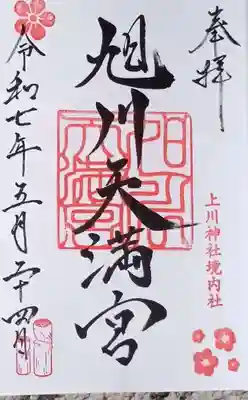 奉拝
上川神社境内社
旭川天満宮
令和七年五月二十四日